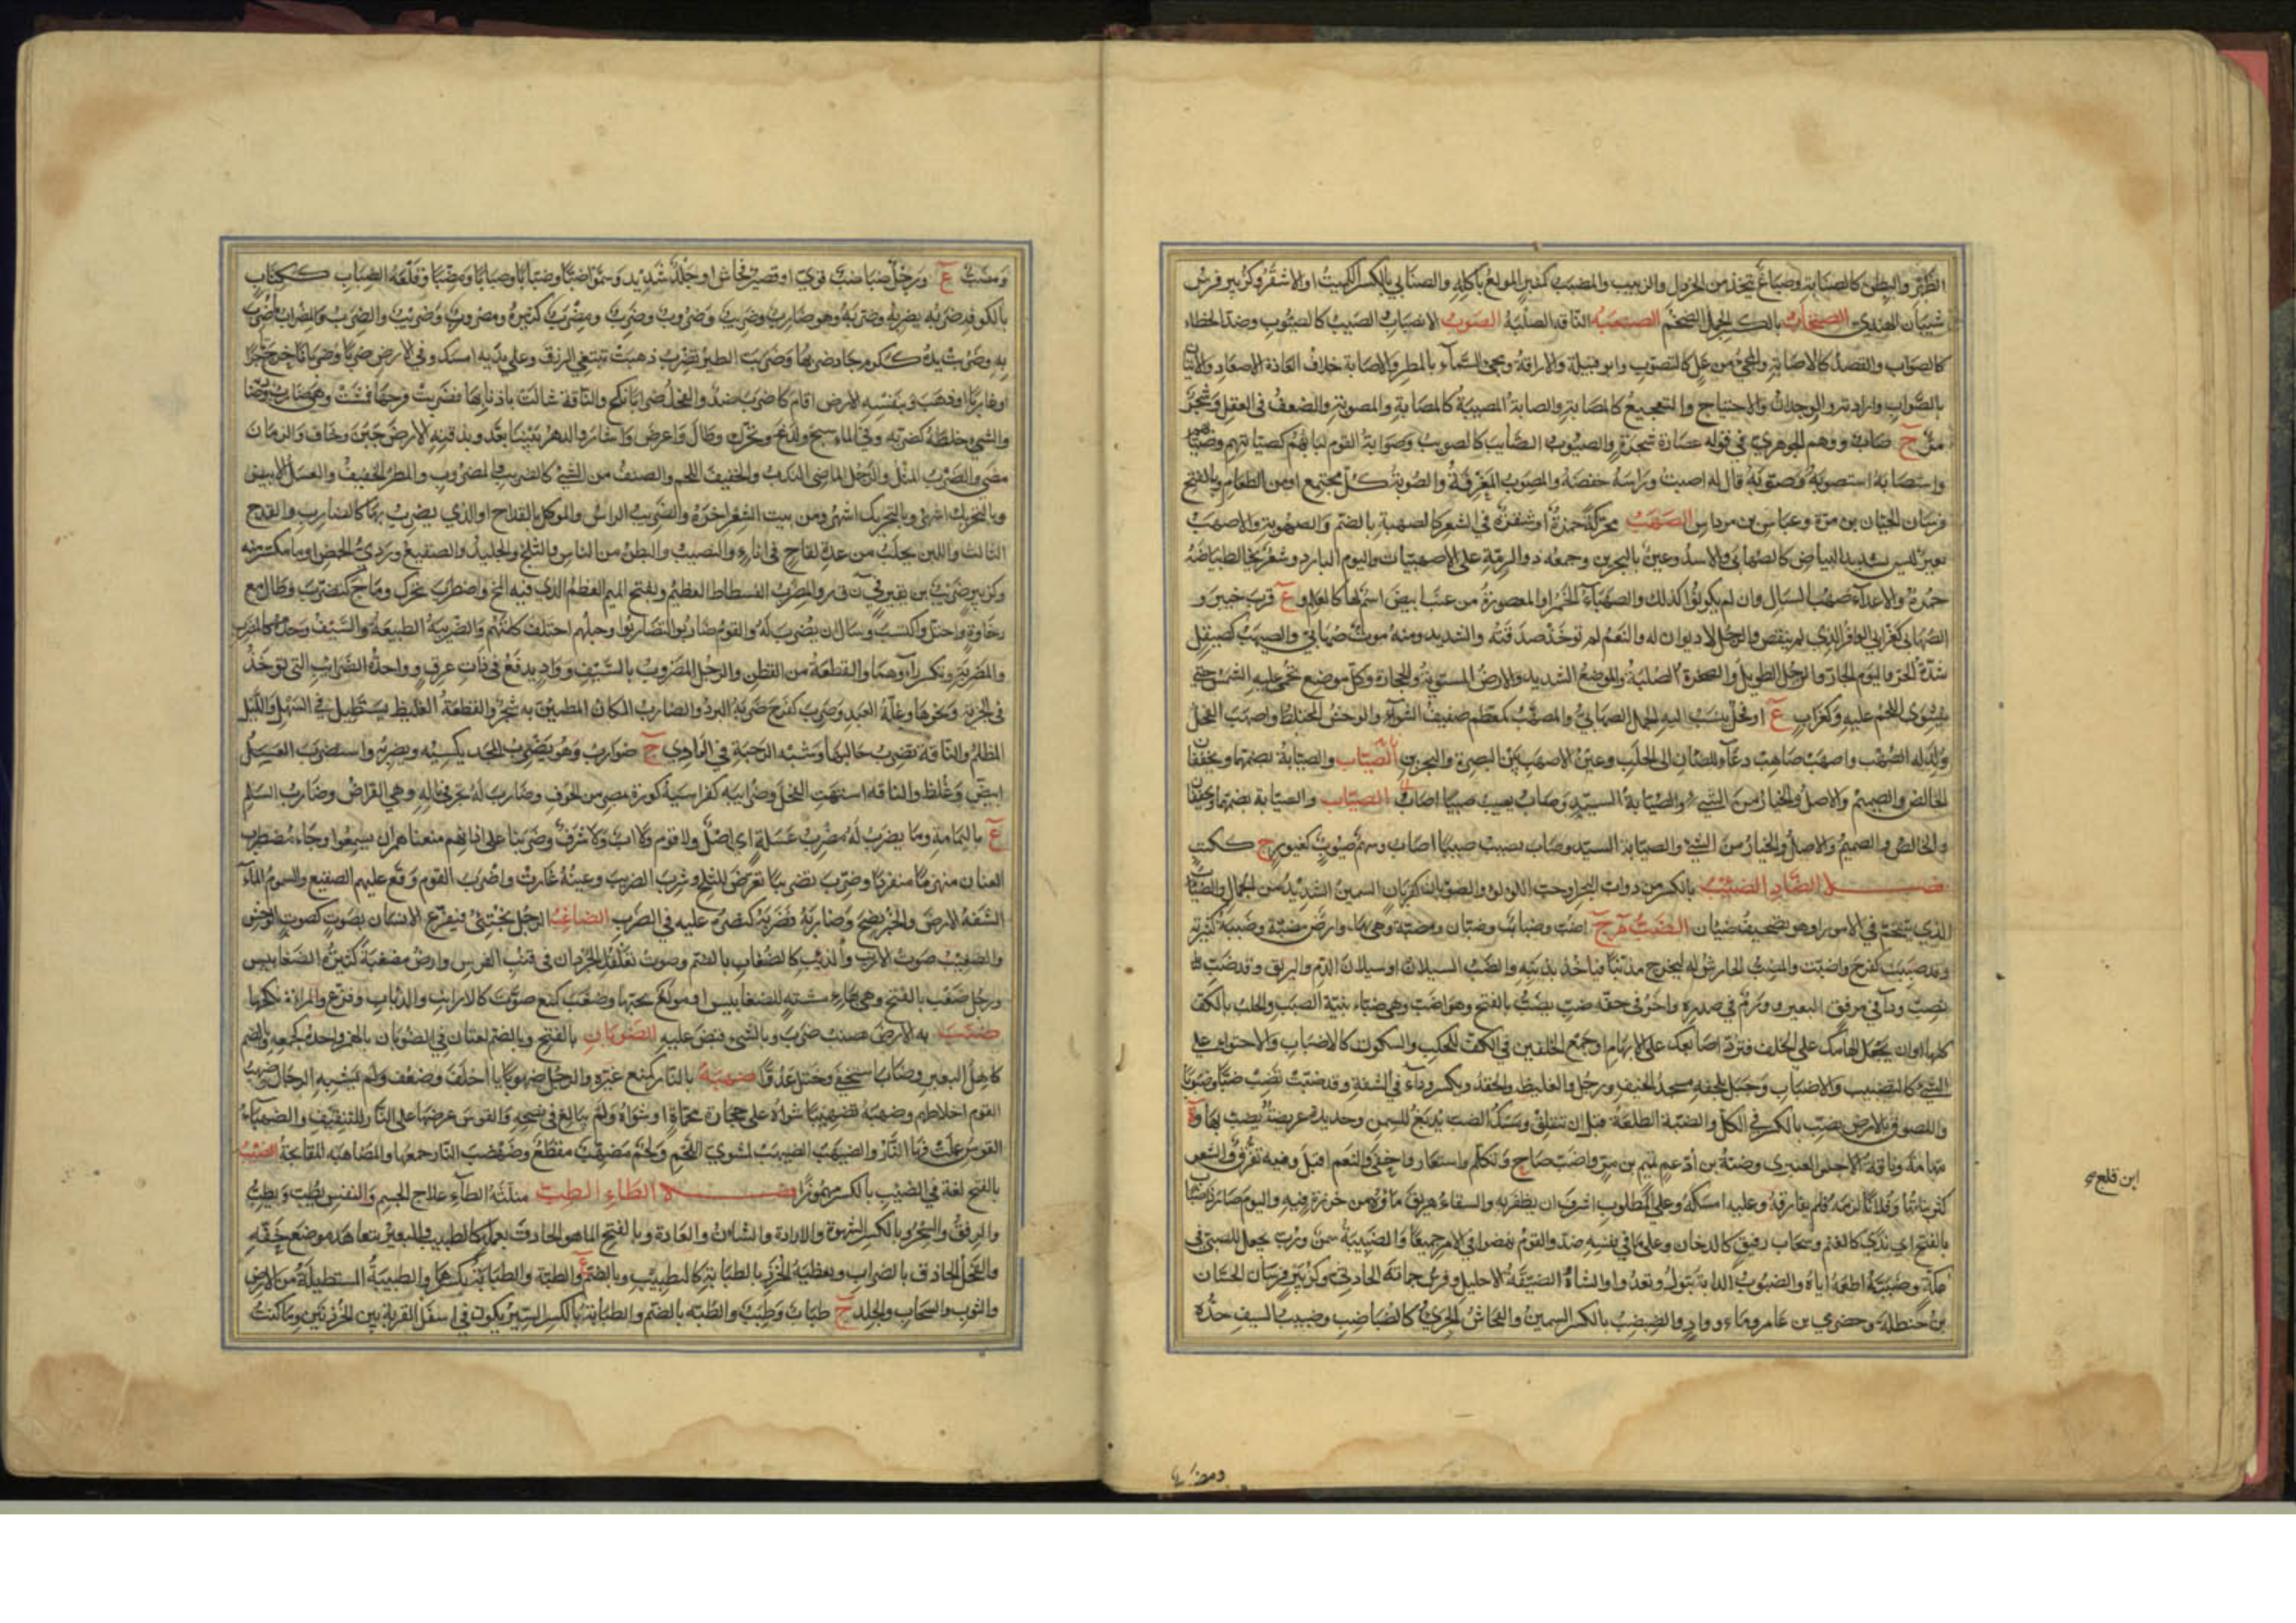 الظهر والبطن كالصنابة وصباغ يتخذ من الخردل والزبيب والمصنب كمنبر المولع بأكله والصنابي بالكسر الكميت او الاشقر وكزبير فرس
شيبان الهندي الصنخاب بالكسر الجمل الضخم الصنعبة الناقة الصلبة الصوب الانصباب الصيب كالصيوب وضد الخطاء
كالصواب والقصد كالاصابة والمجي من عل كالتصوب وابو قبيلة والاراقة ومجي السماء بالمطر والاصابة خلاف الصعاد والاتيان
بالصواب وارادته والوجدان والاحتياج والتفجيع كالمصابة والصابة المصيبة كالمصابة والمصوبة والضعف في العقل وشجر
مر ج صاب ووهم الجوهري في قوله عصارة شجرة والصيوب الصايب كالصويب وصوابة القوم لبابهم كصيابتهم
واستصابه استصوبه وصوبه قال له اصبت وراسه خفضه والمصوب المغرفة والصوبة كل مجتمع او من الطعام وبالفتح
فرسان لحسان بن مرة وعباس بن مرداس الصهب محركة حمرة او شقرة في الشعر كالصهبة بالضم والصهوبة والاصهب
بعير ليس بشديد البياض كالصهابي والاسد وعين بالبحرين وجمعه ذو الرمة على الاصهبيات واليوم البارد وشعر يخالط بياضه
حمرة والاعداء صهب السبال وان لم يكونوا كذلك والصهباء الخمر او المعصورة من عنب ابيض اسم لها كالعلم و ع قرب خيبر و
الصهابي كغرابي الوافر الذي لم ينقص والرجل لا ديوان له والنعم لم توخذ صدقته والشديد ومنه موت صهابي والصيهب كصيقل
شدة الحر واليوم الحار والرجل الطويل والصخرة الصلبة والموضع الشديد والارض المستوية والحجارة وكل موضع تحمى عليه الشمس حتى
ينشوى اللحم عليه وكغراب ع او فحل ينسب اليه الجمال الصهابي والمصهب كمعظم صفيف الشواء والوحش المختلط واصهب الفحل
ولد له الصهب واصهب صاهب دعاء للضان الى الحلب وعين الاصهب بين البصرة والبحرين الصياب والصيابة بضمهما ويخففا
الخالص والصميم والاصل والخيار من الشيء والصيابة السيد وصاب يصيب صيبا اصاب الصياب والصيابة بضمهما ويخففا
والخالص والصميم والاصل والخيار من الشيء والصيابة السيد وصاب يصيب صيبا اصاب وسهم صيوب كغيور ج ككتب
فصل الضاد الضئب بالكسر من دواب البحر او حب اللؤلؤ والضوبان كقربان السمين الشديد من الجمال
الذي يتقحم في الامور او هو تصحيف ضيان الضب م ج اضب وضباب وضبان ومضبة وهي بهاء وارض مضبة وضببة كثيرته
وقد ضببت كفرح واضبت والمضبب الحارش له ليخرج مذنبا فياخذ بذنبه والضب السيلان او سيلان الدم والريق وقد ضبت
تضب وداء في مرفق البعير وورم في صدره واخر في خفه ضب يضب بالفتح وهو اضب وهي ضباء بينة الضبب والحلب بالكف
كلها او ان تجعل ابهامك على الخلف فترد اصابعك على الابهام او جمع الخلفين في الكف للحلب والسكوت كالاضباب والاحتواء على
الشيء كالتضبيب والاضباب وجبل بلحفه مسجد الخيف ورجل والغيظ والحقد ويكسر وداء في الشفة وقد ضبت تضب ضبا وضبوبا
واللصوق بالارض يضب بالكسر في الكل والضبة الطلعة قبل ان تنفلق ومسك الضب يدبغ للسمن وحديدة عريضة يضبب بها و ة
بتهامة وناقة الاحبش العنبري وضبة بن اد عم تميم بن مر واضب صاح وتكلم واستغار واخفى والنعم اقبل وفيه تفرق والشعر
كثر وفلانا لزمه فلم يفارقه وعليه امسكه وعلى المطلوب اشرف ان يظفر به والسقاء هريق ماؤه من خرزة فيه واليوم صار ذا ضباب
بالفتح اي ندى كالغيم وسحاب رقيق كالدخان وعلى ما في نفسه ضد والقوم نهضوا في الامر جميعا والضبيبة سمن ورب يجعل للصبي في
عكة وضببته اطعمه اياه والضبوب الدابة تبول وتعدو والشاة الضيقة الاحليل وفرس جمانة الحارثي وكزبير فرسان لحسان
بن حنظلة وحضرمي بن عامر وماء وواد والضبضب بالكسر السمين والفحاش الجريء كالضباضب وضبيب السيف حده
ابن قلع
ومضب
ومضب ع ورجل ضباضب قوي او قصير فحاش او جلد شديد وسموا ضبا وضبابا وضبابا ومضبا وقلعة الضباب ككتاب
بالكوفة ضربه يضربه وضربه وهو ضارب وضريب وضروب وضرب ومضرب كثيره ومضروب وضريب والضرب والمضراب ما ضرب
به وضربت يده ككرم جاد ضربها وضربت الطير تضرب ذهبت تبتغي الرزق وعلى يديه امسك وفي الارض ضربا وضربانا خرج تاجرا
او غازيا او ذهب وبنفسه الارض اقام كاضرب ضد والفحل ضرابا نكح والناقة شالت باذنابها فضربت فرجها فمشت وهي ضارب
والشيء خلطه كضربه وفي الماء سبح ولدغ وتحرك وطال واعرض واشار والدهر بيننا بعد وبذقنه الارض جبن وخاف والزمان
مضى والضرب المثل والرجل الماضي الندب والخفيف اللحم والصنف من الشيء كالضريب والمضروب والمطر الخفيف والعسل الابيض
وبالتحريك اشهر ومن بيت الشعر اخره والضريب الراس والموكل بالقداح او الذي يضرب بها كالضارب والقدح
الثالث واللبن يحلب من عدة لقاح في اناء والنصيب والبطن من الناس والثلج والجليد والصقيع وردي الحمض او ما تكسر منه
وكزبير ضريب بن نقير في ن ق ر والمضرب الفسطاط العظيم وبفتح الميم العظم الذي فيه المخ واضطرب تحرك وماج كتضرب وطال مع
رخاوة واختل واكتسب وسال ان يضرب له والقوم ضاربوا كتضاربوا وحبلهم اختلف كلمتهم والضريبة الطبيعة والسيف وحده كالمضرب
والمضربة وتكسر راؤهما والقطعة من القطن والرجل المضروب بالسيف وواد يدفع في ذات عرق وواحدة الضرائب التي توخذ
في الجزية ونحوها وغلة العبد وضرب كفرح ضربه البرد والضارب المكان المطمئن به شجر والقطعة الغليظة تستطيل في السهل والليل
المظلم والناقة تضرب حالبها وشبه الرحبة في الوادي ج ضوارب وهو يضرب المجد يكسبه ويضربه واستضرب العسل
ابيض وغلظ والناقة اشتهت الفحل وضرابية كقراسية كورة بمصر من الحوف وضارب له تجر في ماله وهي القراض وضارب السلم
ع باليمامة وما يضرب له مضرب عسلة اي اصل ولا قوم ولا اب ولا شرف وضربنا على اذانهم منعناهم ان يسمعوا وجاء مضطرب
العنان منهزما منفردا وضرب تضريبا تعرض للثلج وشرب الضريب وعينه غارت واضرب القوم وقع عليهم الصقيع والسموم الماء
انشفه الارض والخبز نضج وضاربه فضربه كنصره غلبه في الضرب الضاغب الرجل يختبئ فيفزع الانسان بصوت كصوت الوحش
والضغيب صوت الارنب والذئب كالضغاب بالضم وصوت تقلقل الجردان في قنب الفرس وارض مضغبة كثيرة الضغابيس
ورجل ضغب بالفتح وهي بهاء مشته للضغابيس او مولع بحبها وضغب كمنع صوت كالارانب والذئاب وفزع والمراة نكحها
ضنب به الارض ضرب وبالشيء قبض عليه الضوبان بالفتح وبالضم لغتان في الضؤبان بالهمز واحده كجمعه وبالضم
كاهل البعير وضاب استخفى وختل عدوا ضهبه بالنار كمنع غيره والرجل ضهوبا اخلف وضعف ولم يشبه الرجال وضهب
القوم اخلاطهم وضهبه تضهيبا شواه على حجارة محماة او شواه ولم يبالغ في نضجه والقوس عرضها على النار للتثقيف والضهباء
القوس عملت فيها النار والضيهب الضيهب لمشوي اللحم ولحم مضهب مقطع وضهضب النار جمعها والمضاهبة المقابحة الضيب
بالفتح لغة في الضئب بالكسر مهموزا فصل الطاء الطب مثلثة الطاء علاج الجسم والنفس يطب ويطب
والرفق والسحر وبالكسر الشهوة والارادة والشان والعادة وبالفتح الماهر الحاذق بعمله كالطبيب والبعير يتعاهد موضع خفه
والفحل الحاذق بالضراب وتغطية الخرز بالطبابة كالتطبيب وبالضم ع والطبة والطبابة بكسرهما والطبيبة المستطيلة من الارض
والثوب والسحاب والجلد ج طباب وطبب والطبة بالضم والطبابة بالكسر السير يكون في اسفل القربة بين الخرزتين وما كنت